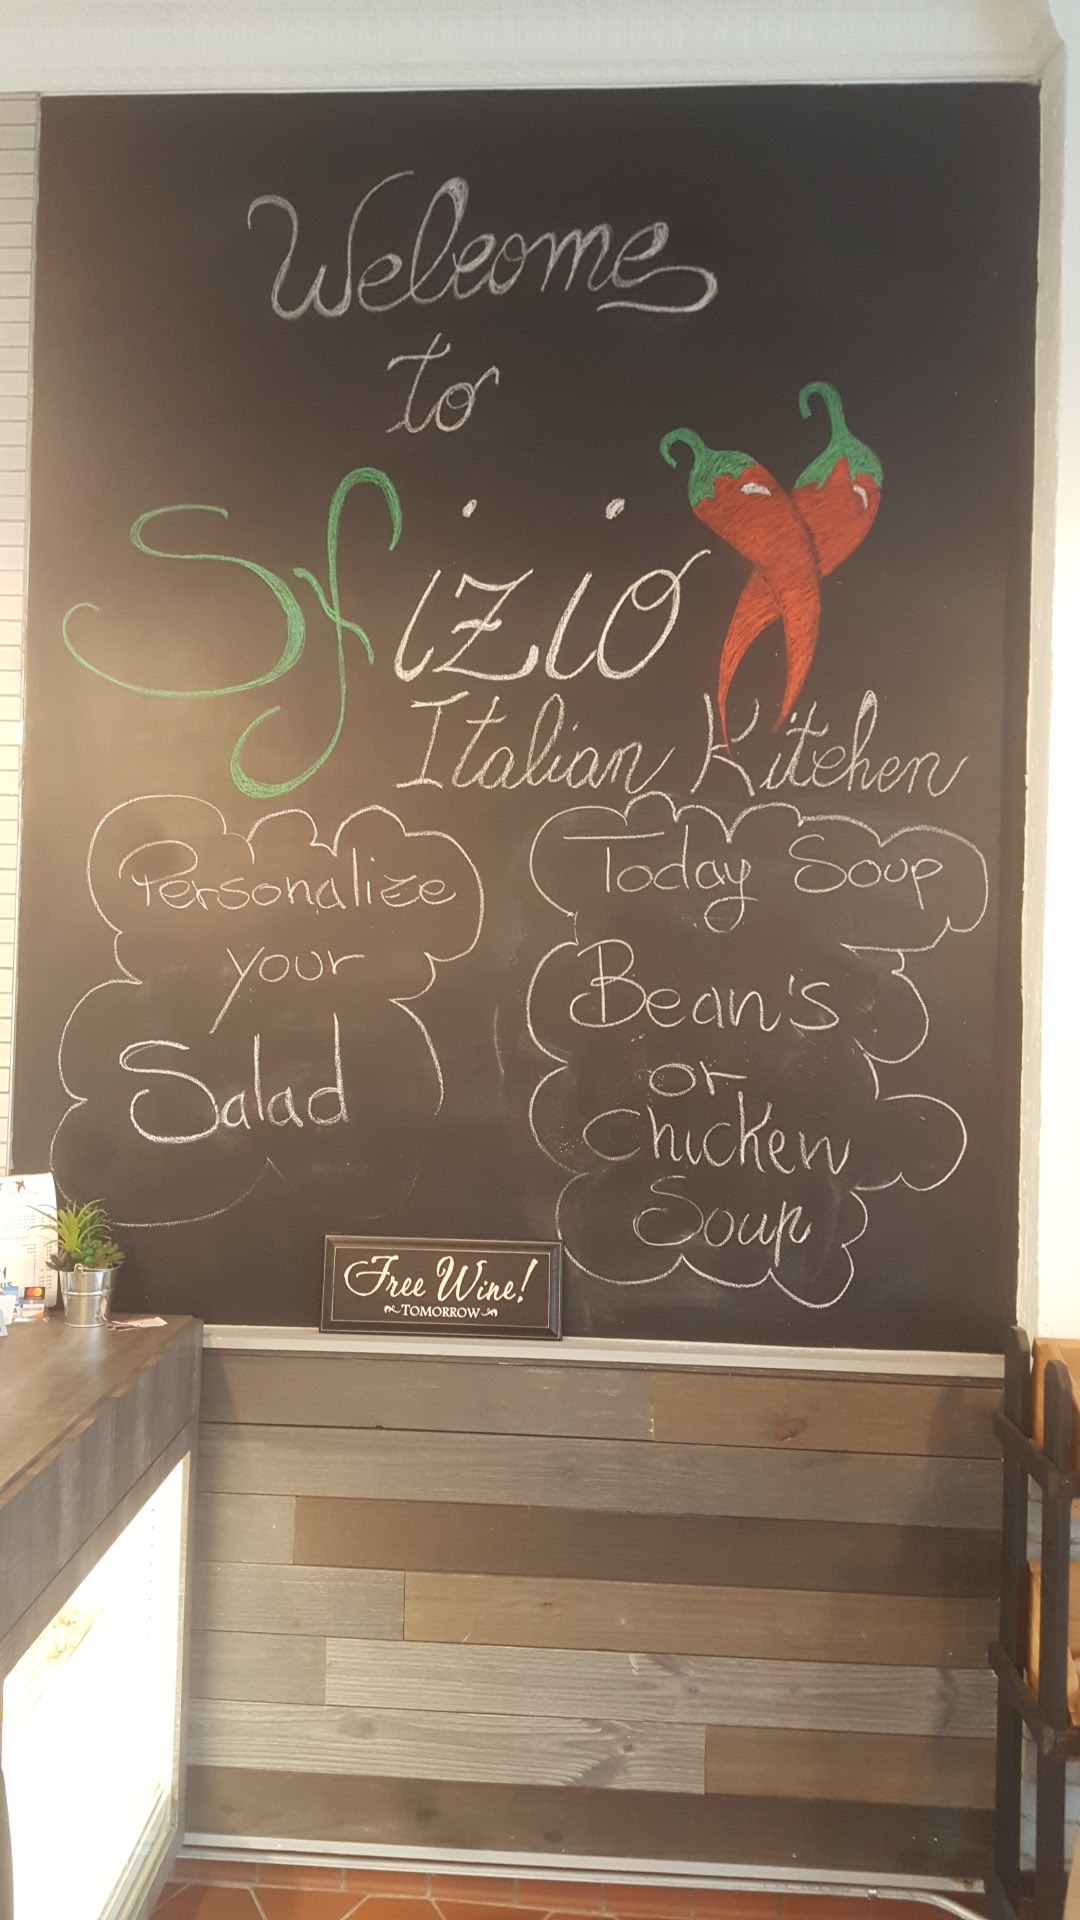 Welcome
to
Sfizio
Italian Kitchen
Personalize
your
Salad
Today Soup
Bean's
or
Chicken
Soup
Free Wine!
TOMORROW